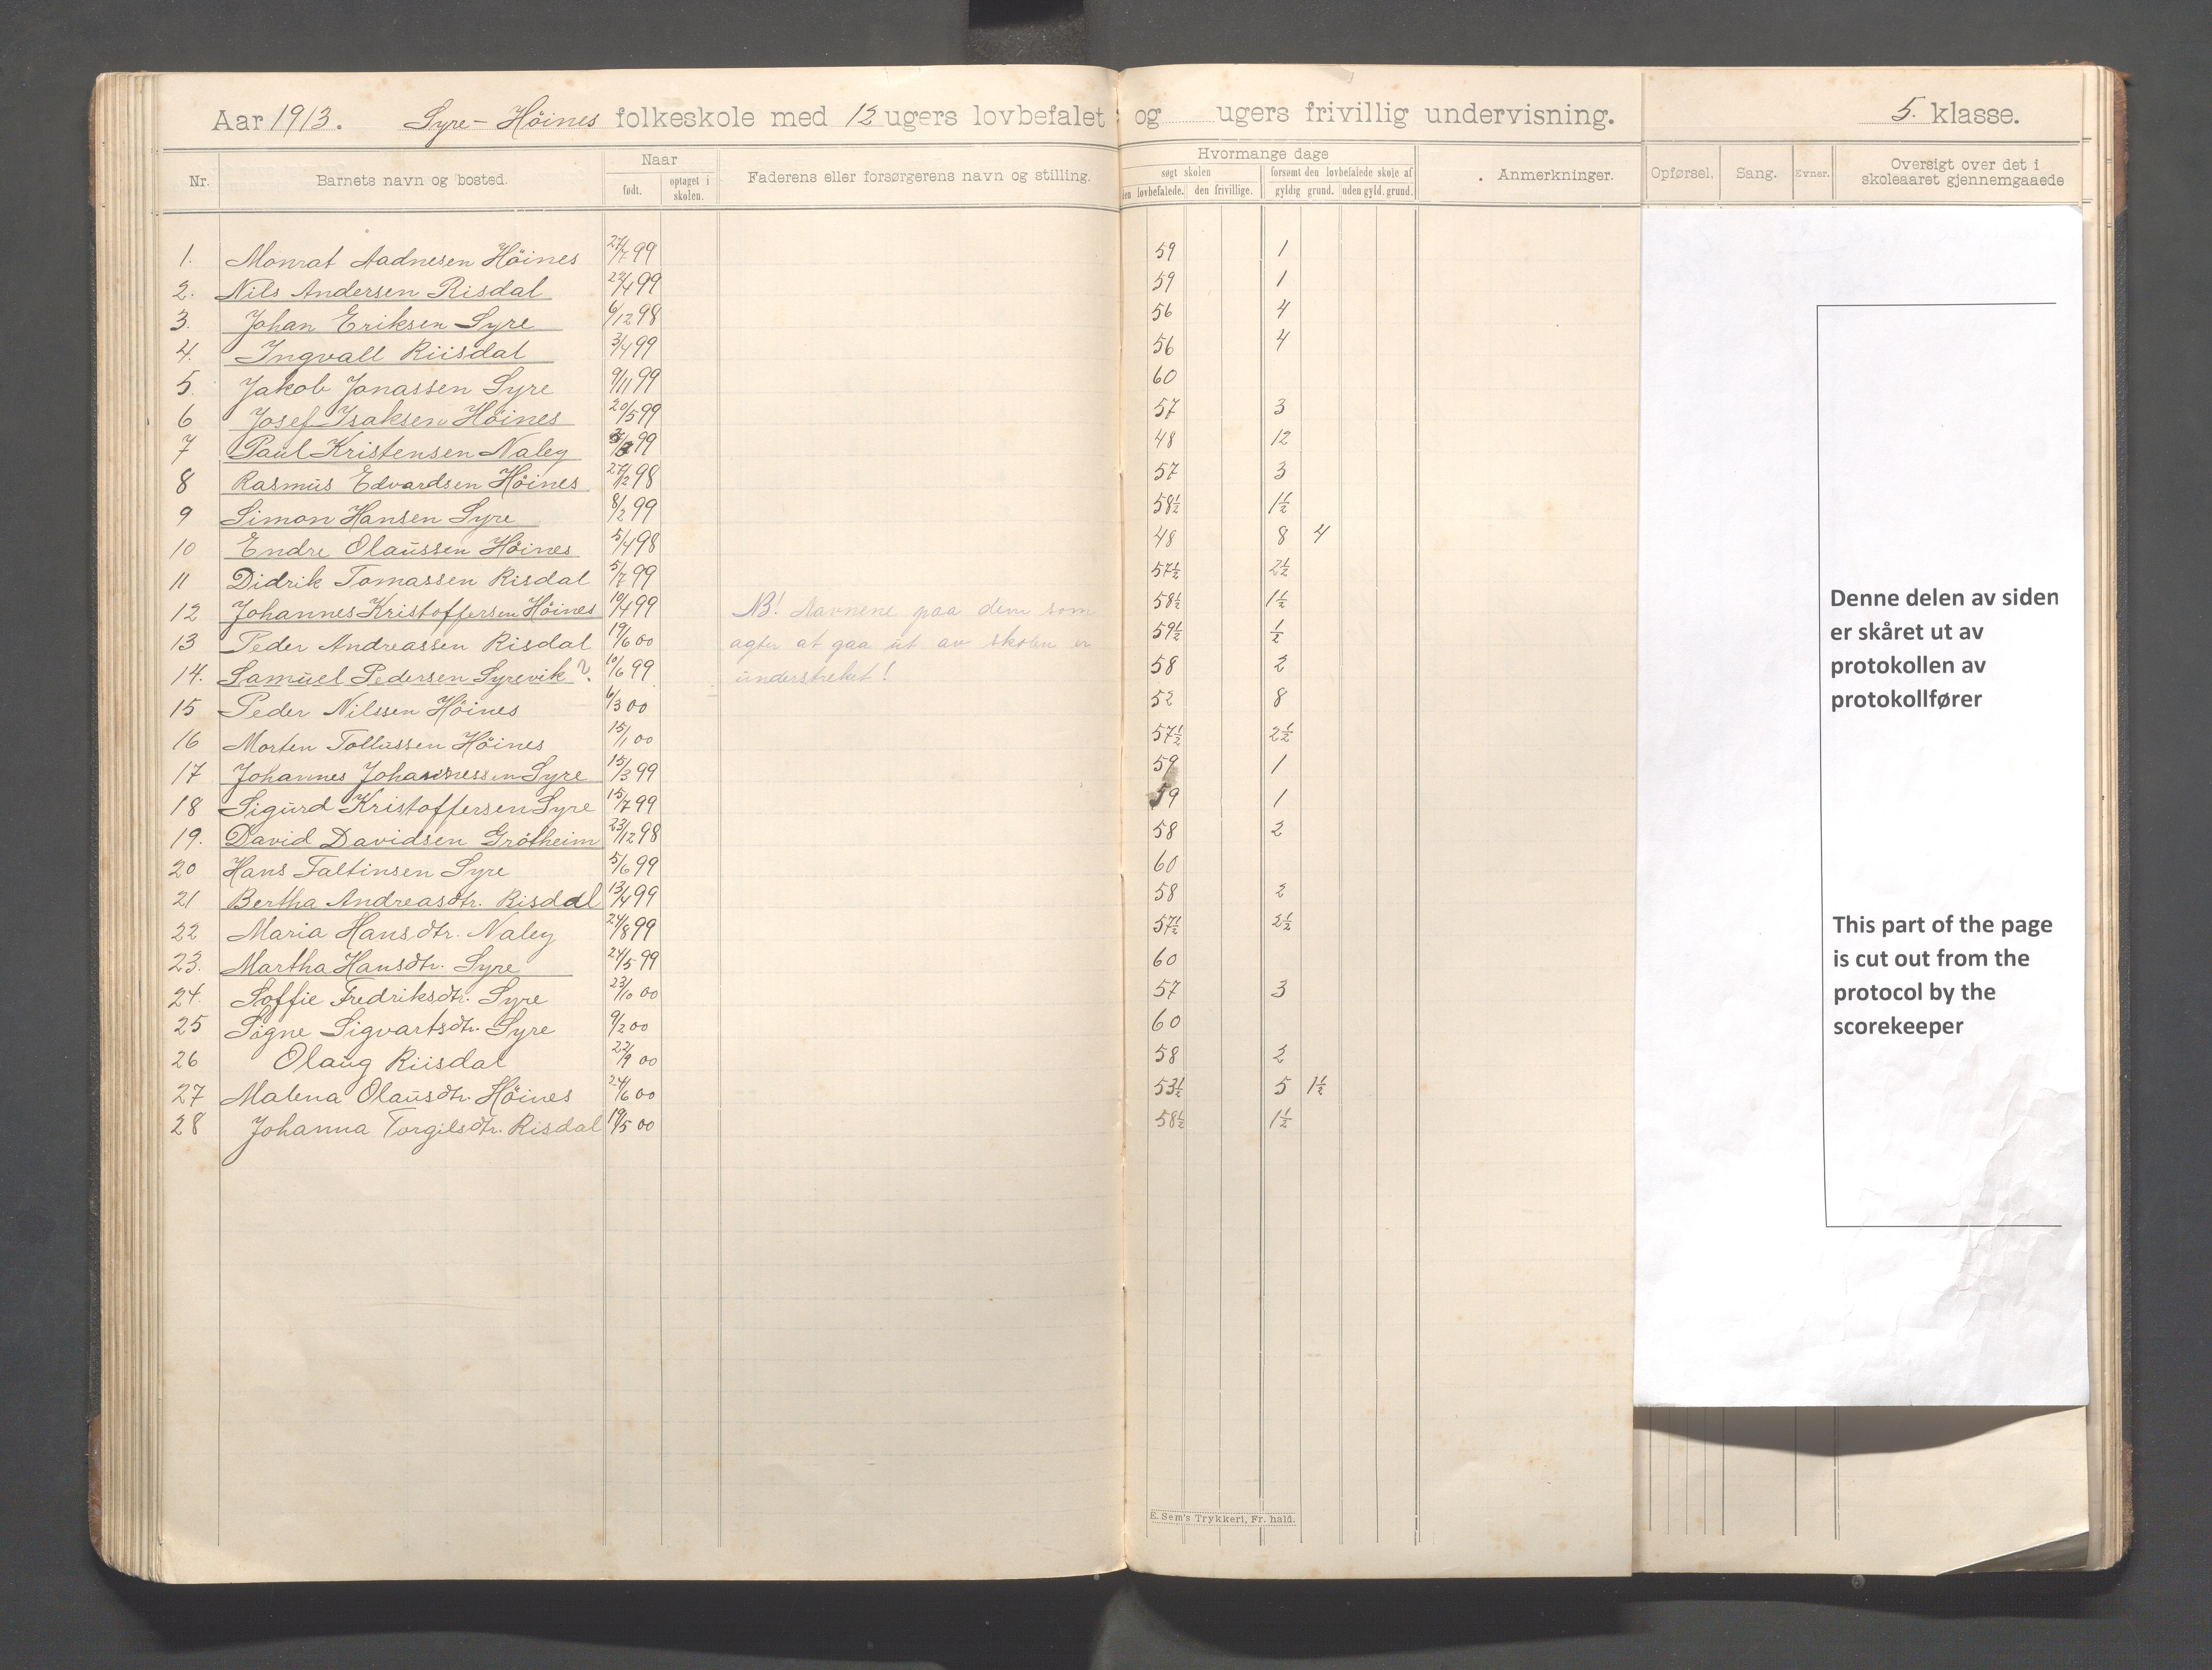 Aar 1913. Syre-Höines folkeskole med 12 ugers lovbefalet og ugers frivillig undervisning. 5. klasse.
Nr. Barnets navn og bosted. Naar født. optaget i skolen. Faderens eller forsørgerens navn og stilling. Hvormange dage søgt skolen den lovbefalede. den frivillige. forsømt den lovbefalede skole af gyldig grund. uden gyld. grund. Anmerkninger. Opførsel. Sang. Evner. Oversigt over det i skoleaaret gjennemgaaede
1. Monrat Aadnesen Höines 27/7 99 59 1
2. Nils Andersen Risdal 22/4 99 59 1
3. Johan Eriksen Syre 6/12 98 56 4
4. Ingvall Riisdal 3/4 99 56 4
5. Jakob Jonassen Syre 9/11 99 60
6 Josef Isaksen Höines 20/5 99 57 3
7 Paul Kristensen Naley 99 48 12
8 Rasmus Edvardsen Höines 27/2 98 57 3
9 Simon Hansen Syre 8/2 99 58½ 1½
10 Endre Olaussen Höines 5/4 98 48 8 4
11 Didrik Tomassen Risdal 5/7 99 57½ 2½
12 Johannes Kristoffersen Höines 10/4 99 NB! Navnene paa dem som 58½ 1½
13 Peder Andreassen Risdal 19/6 00 agter at gaa ut av skolen er 59½ ½
14. Samuel Pedersen Syrevik? 10/6 99 understreket! 58 2
15 Peder Nilssen Höines 6/3 00 52 8
16 Morten Tollussen Höines 15/1 00 57½ 2½
17 Johannes Johannessen Syre 15/3 99 59 1
18 Sigurd Kristoffersen Syre 15/7 99 59 1
19. David Davidsen Grötheim 23/12 98 58 2
20 Hans Faltinsen Syre 5/6 99 60
21 Bertha Andreasdtr. Risdal 13/4 99 58 2
22 Maria Hansdtr. Naley 24/8 99 57½ 2½
23. Martha Hansdtr. Syre 24/5 99 60
24. Soffie Fredriksdtr. Syre 23/10 00 57 3
25 Signe Sigvartsdtr. Syre 9/2 00 60
26 Olaug Riisdal 22/9 00 58 2
27 Malena Olausdtr. Höines 24/6 00 53½ 5 1½
28 Johanna Torgilsdtr. Risdal 19/5 00 58½ 1½
Denne delen av siden
er skåret ut av
protokollen av
protokollfører
This part of the page
is cut out from the
protocol by the
scorekeeper
E. Sem's Trykkeri, Fr. hald.